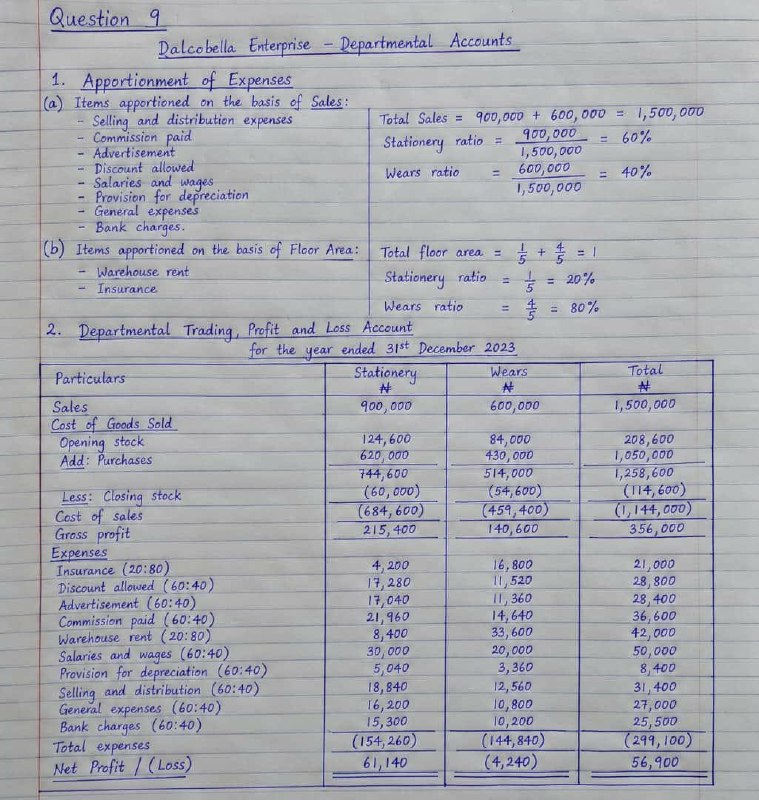 Question 9
Dalcobella Enterprise – Departmental Accounts
1. Apportionment of Expenses
(a) Items apportioned on the basis of Sales:
- Selling and distribution expenses
- Commission paid
- Advertisement
- Discount allowed
- Salaries and wages
- Provision for depreciation
- General expenses
- Bank charges.
Total Sales = 900,000 + 600,000 = 1,500,000
Stationery ratio = 900,000 / 1,500,000 = 60%
Wears ratio = 600,000 / 1,500,000 = 40%
(b) Items apportioned on the basis of Floor Area:
- Warehouse rent
- Insurance
Total floor area = 1/5 + 4/5 = 1
Stationery ratio = 1/5 = 20%
Wears ratio = 4/5 = 80%
2. Departmental Trading, Profit and Loss Account
for the year ended 31st December 2023
Particulars Stationery Wears Total
₦ ₦ ₦
Sales 900,000 600,000 1,500,000
Cost of Goods Sold
Opening stock 124,600 84,000 208,600
Add: Purchases 620,000 430,000 1,050,000
744,600 514,000 1,258,600
Less: Closing stock (60,000) (54,600) (114,600)
Cost of sales (684,600) (459,400) (1,144,000)
Gross profit 215,400 140,600 356,000
Expenses
Insurance (20:80) 4,200 16,800 21,000
Discount allowed (60:40) 17,280 11,520 28,800
Advertisement (60:40) 17,040 11,360 28,400
Commission paid (60:40) 21,960 14,640 36,600
Warehouse rent (20:80) 8,400 33,600 42,000
Salaries and wages (60:40) 30,000 20,000 50,000
Provision for depreciation (60:40) 5,040 3,360 8,400
Selling and distribution (60:40) 18,840 12,560 31,400
General expenses (60:40) 16,200 10,800 27,000
Bank charges (60:40) 15,300 10,200 25,500
Total expenses (154,260) (144,840) (299,100)
Net Profit / (Loss) 61,140 (4,240) 56,900